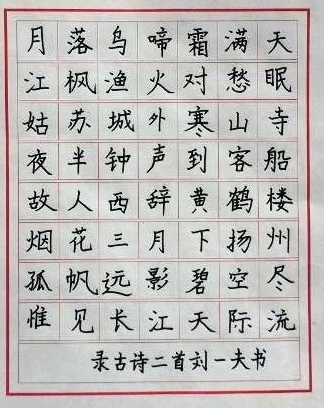 月落鸟啼霜满天
江枫渔火对愁眠
姑苏城外寒山寺
夜半钟声到客船
故人西辞黄鹤楼
烟花三月下扬州
孤帆远影碧空尽
惟见长江天际流
录古诗二首刘一夫书